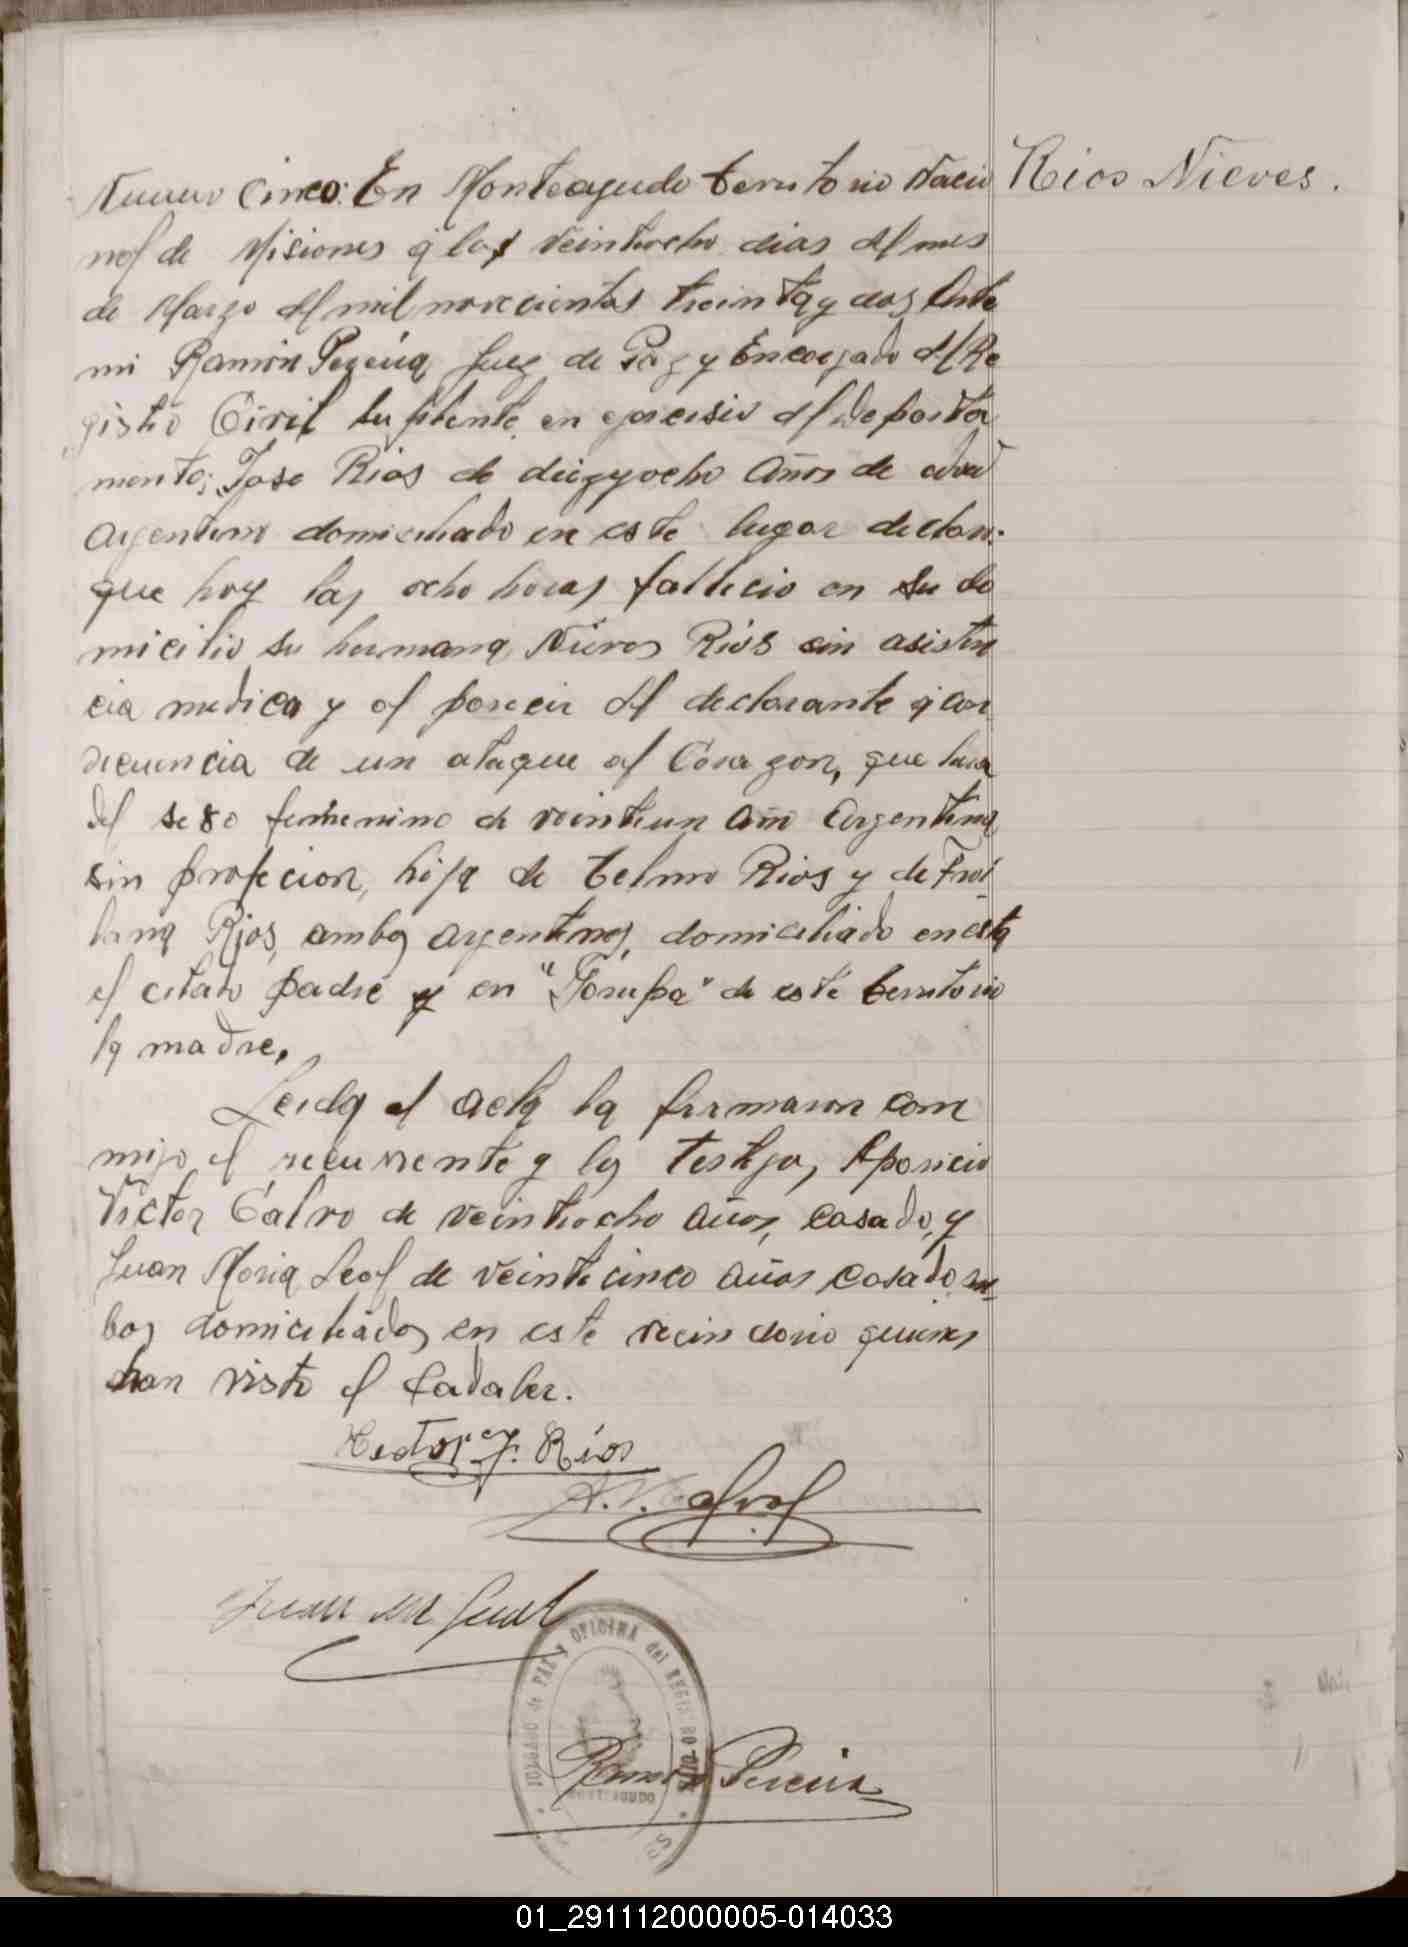 Rios Nieves.
Numero Cinco: En Monteagudo territorio Nacio
nal de Misiones a los veintiocho dias del mes
de Marzo del mil novecientos treinta y dos, Ante
mi Ramón Pereira Juez de Paz y Encargado del Re
gistro Civil suplente en ejercisio del departa
mento; Jose Rios de diezyocho años de edad
Argentino domiciliado en este lugar declara:
que hoy las ocho horas fallecio en su do
micilio su hermana Nieves Rios sin asisten
cia medica y al parecer del declarante a con
secuencia de un ataque al Corazon, que hera
del sexo femenino de veintiun año Argentina
sin profecion, hija de telmo Rios y de Froi
lana Rios, ambos argentinos, domiciliado en esta
el citado padre y en "Torupa" de este territorio
la madre.
Leida el acta la firmaron con
migo el recurrente y los testigos, Aparicio
Victor Calvo de veintiocho años, casado, y
Juan Maria Leal de veinticinco años casado, am
bos domiciliados en este vecindario quienes
han visto el Cadaber.
Hector J. Ríos
A. V. Calvo
Juan M Leal
JUZGADO de PAZ y OFICINA del REGISTRO CIVIL
Ramon Pereira
MONTEAGUDO
01_291112000005-014033